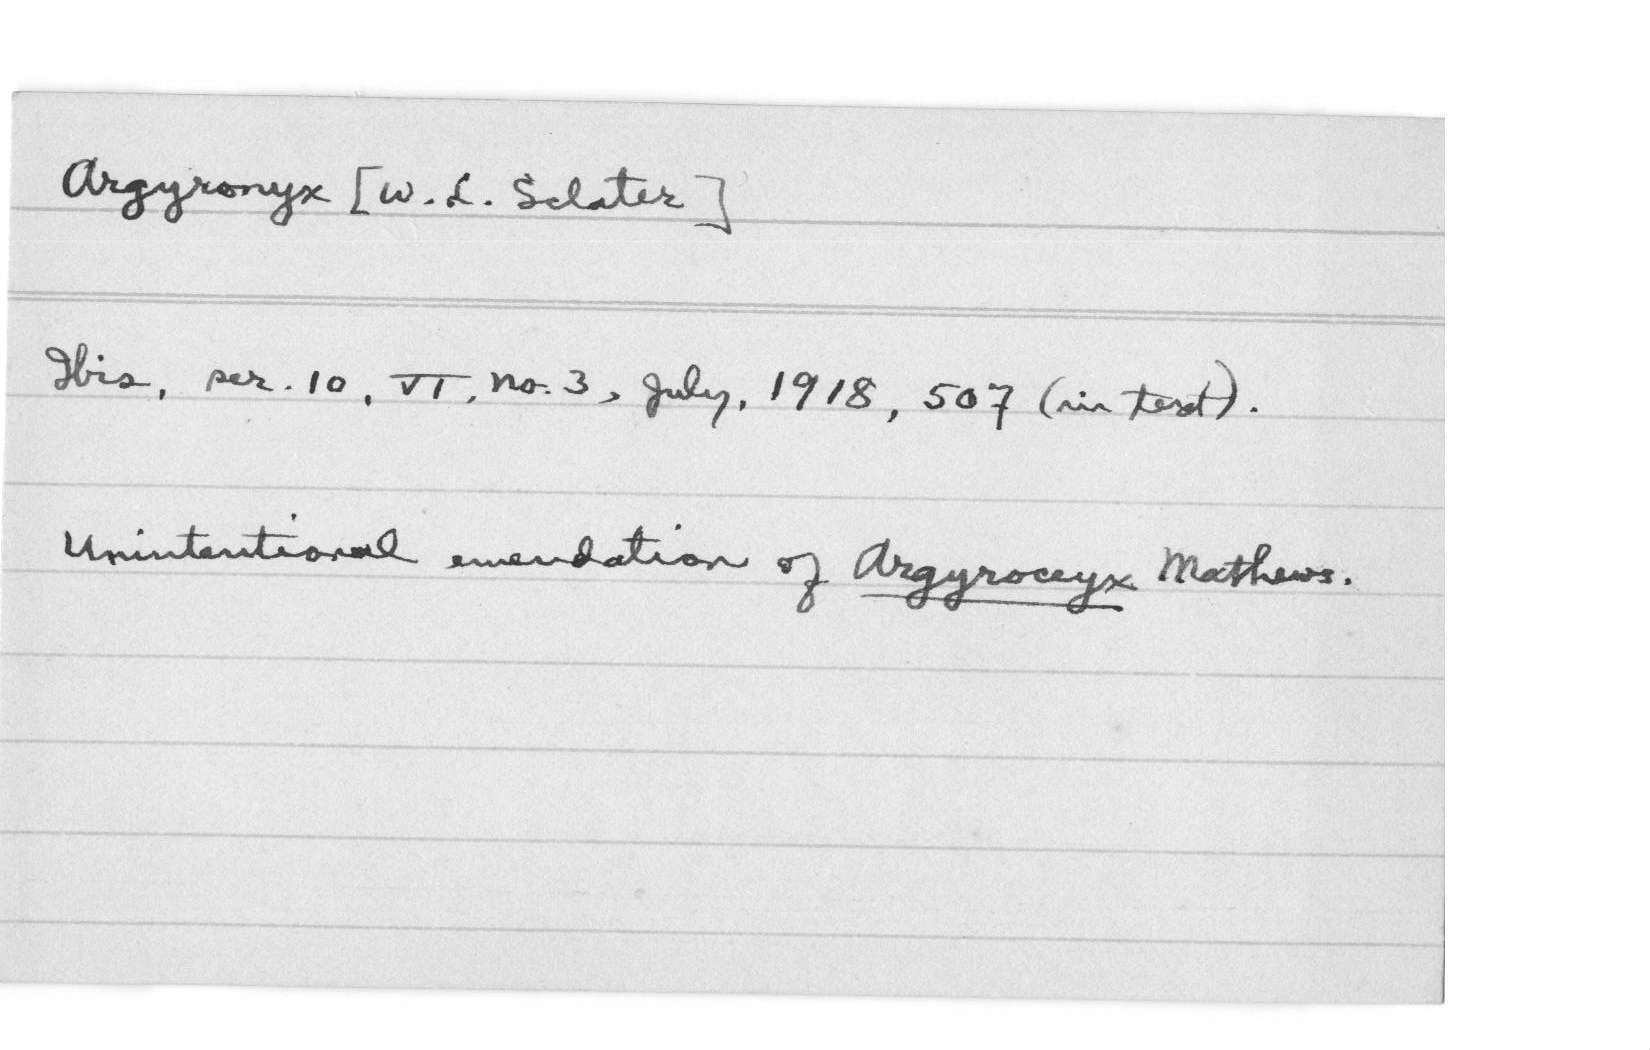 Argyronyx [W. L. Sclater]
Ibis, ser. 10, VI, no. 3, July, 1918, 507 (in text).
Unintentional emendation of Argyroceyx Mathews.